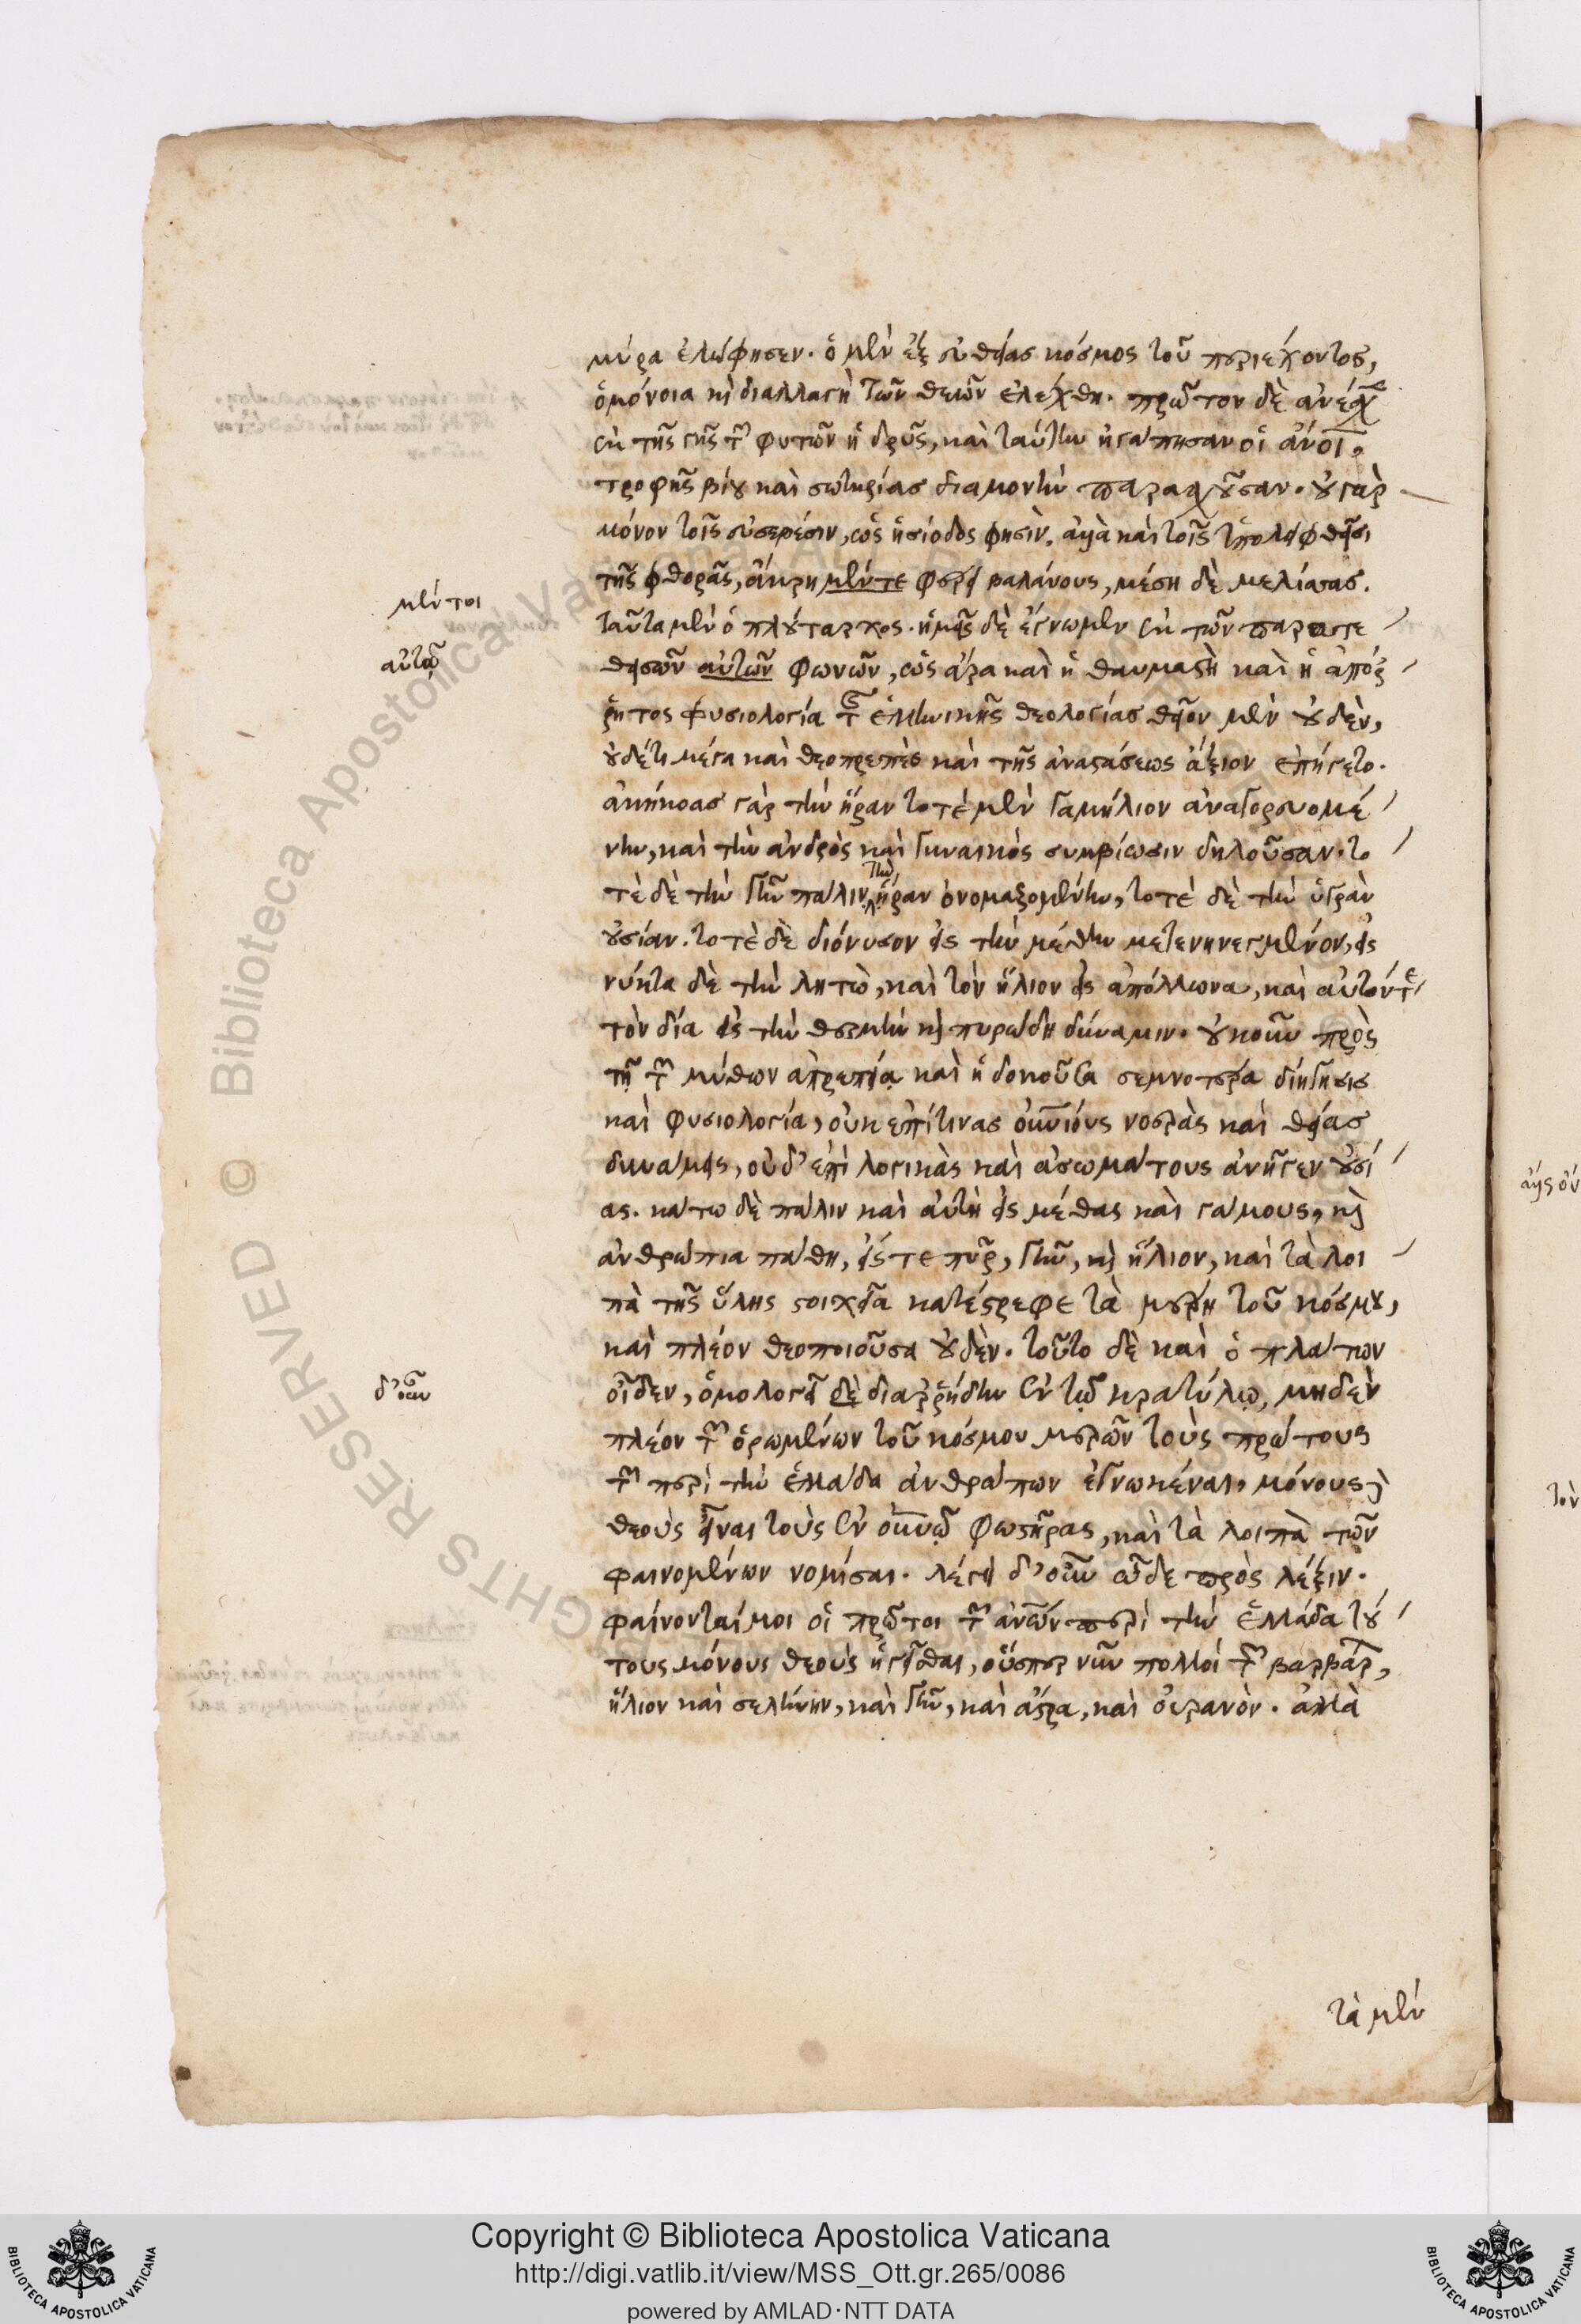 μύρα ἐλώφησεν. ὁ μὲν ἐξ εὐθείας κόσμος τοῦ περιέχοντος,
ὁμόνοια κὶ διαλλαγὴ τῶν θεῶν ἐλέχθη. πρῶτον δὲ ἀνέσχε
ἐκ τῆς γῆς τῶν φυτῶν ἡ δρῦς, καὶ ταύτην ἠγάπησαν οἱ ἄνοι,
τροφῆς βίου καὶ σωτηρίας διαμονὴν παρασχοῦσαν. οὐ γὰρ
μόνον τοῖς εὐσεβέσιν, ὡς ἡσίοδος φησὶν, ἀλλὰ καὶ τοῖς ὑπολειφθεῖσι
τῆς φθορᾶς, ἄκρη μέν τε φέρει βαλάνους, μέση δὲ μελίσσας.
ταῦτα μὲν ὁ πλούταρχος. ἡμεῖς δὲ ἔγνωμεν ἐκ τῶν παρατε
θεισῶν αὐτῶν φωνῶν, ὡς ἄρα καὶ ἡ θαυμαστὴ καὶ ἡ ἀπόρ
ρητος φυσιολογία τῆς ἑλληνικῆς θεολογίας θεῖον μὲν οὐδὲν,
οὐδέ τι μέγα καὶ θεοπρεπὲς καὶ τῆς ἀναστάσεως ἄξιον ἐπήγετο.
ἀκήκοας γὰρ τὴν ἥραν τοτὲ μὲν γαμήλιον ἀναγορευομέ
νην, καὶ τὴν ἀνδρὸς καὶ γυναικὸς συμβίωσιν δηλοῦσαν. το
τὲ δὲ τὴν γῆν πάλιν τὴν ἥραν ὀνομαζομένην, τοτὲ δὲ τὴν ὑγρὰν
οὐσίαν. τοτὲ δὲ διόνυσον εἰς τὴν μέθην μετενηνεγμένον, εἰς
νύκτα δὲ τὴν λητὼ, καὶ τὸν ἥλιον εἰς ἀπόλλωνα, καὶ αὐτόν τε
τὸν δία εἰς τὴν θερμὴν κὶ πυρώδη δύναμιν. οὐκοῦν πρὸς
τῇ τῶν μύθων ἀπρεπείᾳ καὶ ἡ δοκοῦσα σεμνοτέρα διήγησις
καὶ φυσιολογία, οὐκ ἐπί τινας οὐνίους νοερὰς καὶ θείας
δυνάμεις, οὐδ' ἐπὶ λογικὰς καὶ ἀσωμάτους ἀνῆγεν οὐσί
ας. κάτω δὲ πάλιν καὶ αὐτὴ εἰς μέθας καὶ γάμους, κὶ
ἀνθρώπια πάθη, εἴς τε πῦρ, γῆν, κὶ ἥλιον, καὶ τὰ λοι
πὰ τῆς ὕλης στοιχεῖα κατέστρεφε τὰ μέρη τοῦ κόσμου,
καὶ πλέον θεοποιοῦσα οὐδὲν. τοῦτο δὲ καὶ ὁ πλάτων
οἶδεν, ὁμολογεῖ δὲ διαρρήδην ἐν τῷ κρατύλῳ, μηδὲν
πλέον τῶν ὁρωμένων τοῦ κόσμου μερῶν τοὺς πρώτους
τῶν περὶ τὴν ἑλλάδα ἀνθρώπων ἐγνωκέναι, μόνους δὲ
θεοὺς εἶναι τοὺς ἐν οὐνῷ φωστῆρας, καὶ τὰ λοιπὰ τῶν
φαινομένων νομίσαι. λέγει δ' οὖν ὧδε πρὸς λέξιν.
φαίνονταί μοι οἱ πρῶτοι τῶν ἀνων περὶ τὴν ἑλλάδα τού
τους μόνους θεοὺς ἡγεῖσθαι, οὕσπερ νῦν πολλοὶ τῶν βαρβάρ,
ἥλιον καὶ σελήνην, καὶ γῆν, καὶ ἄστρα, καὶ οὐρανὸν. ἀλλὰ
μέν τοι
αὐτῷ
δ' οὖν
τὰ μὲν
τὸν
Copyright © Biblioteca Apostolica Vaticana
http://digi.vatlib.it/view/MSS_Ott.gr.265/0086
powered by AMLAD·NTT DATA
BIBLIOTECA APOSTOLICA VATICANA
BIBLIOTECA APOSTOLICA VATICANA